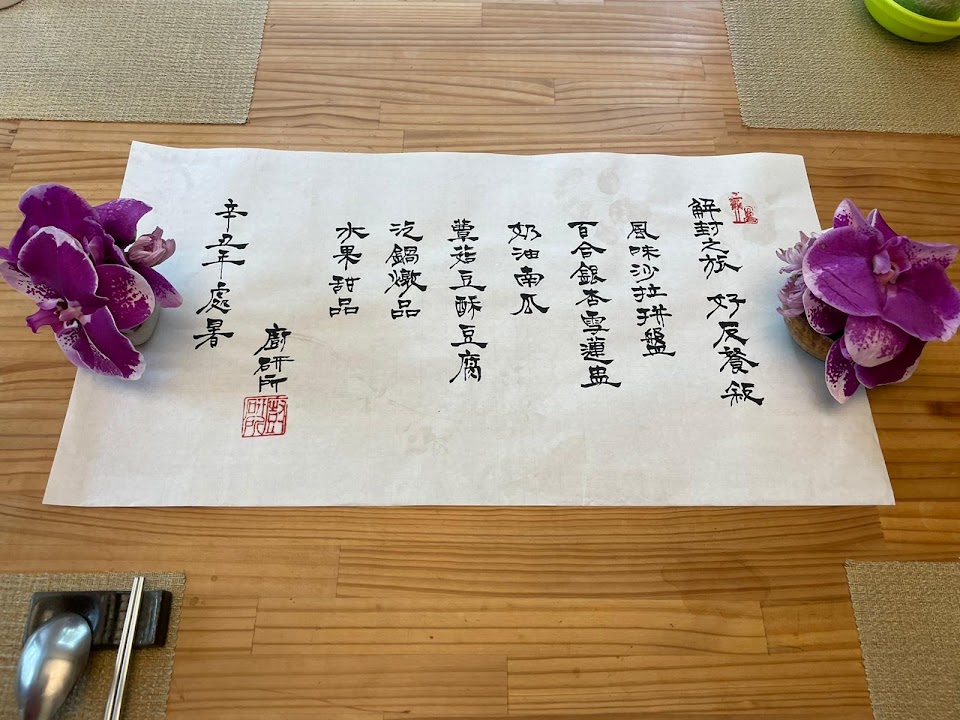 解封之旅 好友餐敘
風味沙拉拼盤
百合銀杏雪蓮盅
奶油南瓜
蕈菇豆酥豆腐
汽鍋燉品
水果甜品
辛丑年處暑
廚研所
廚研所